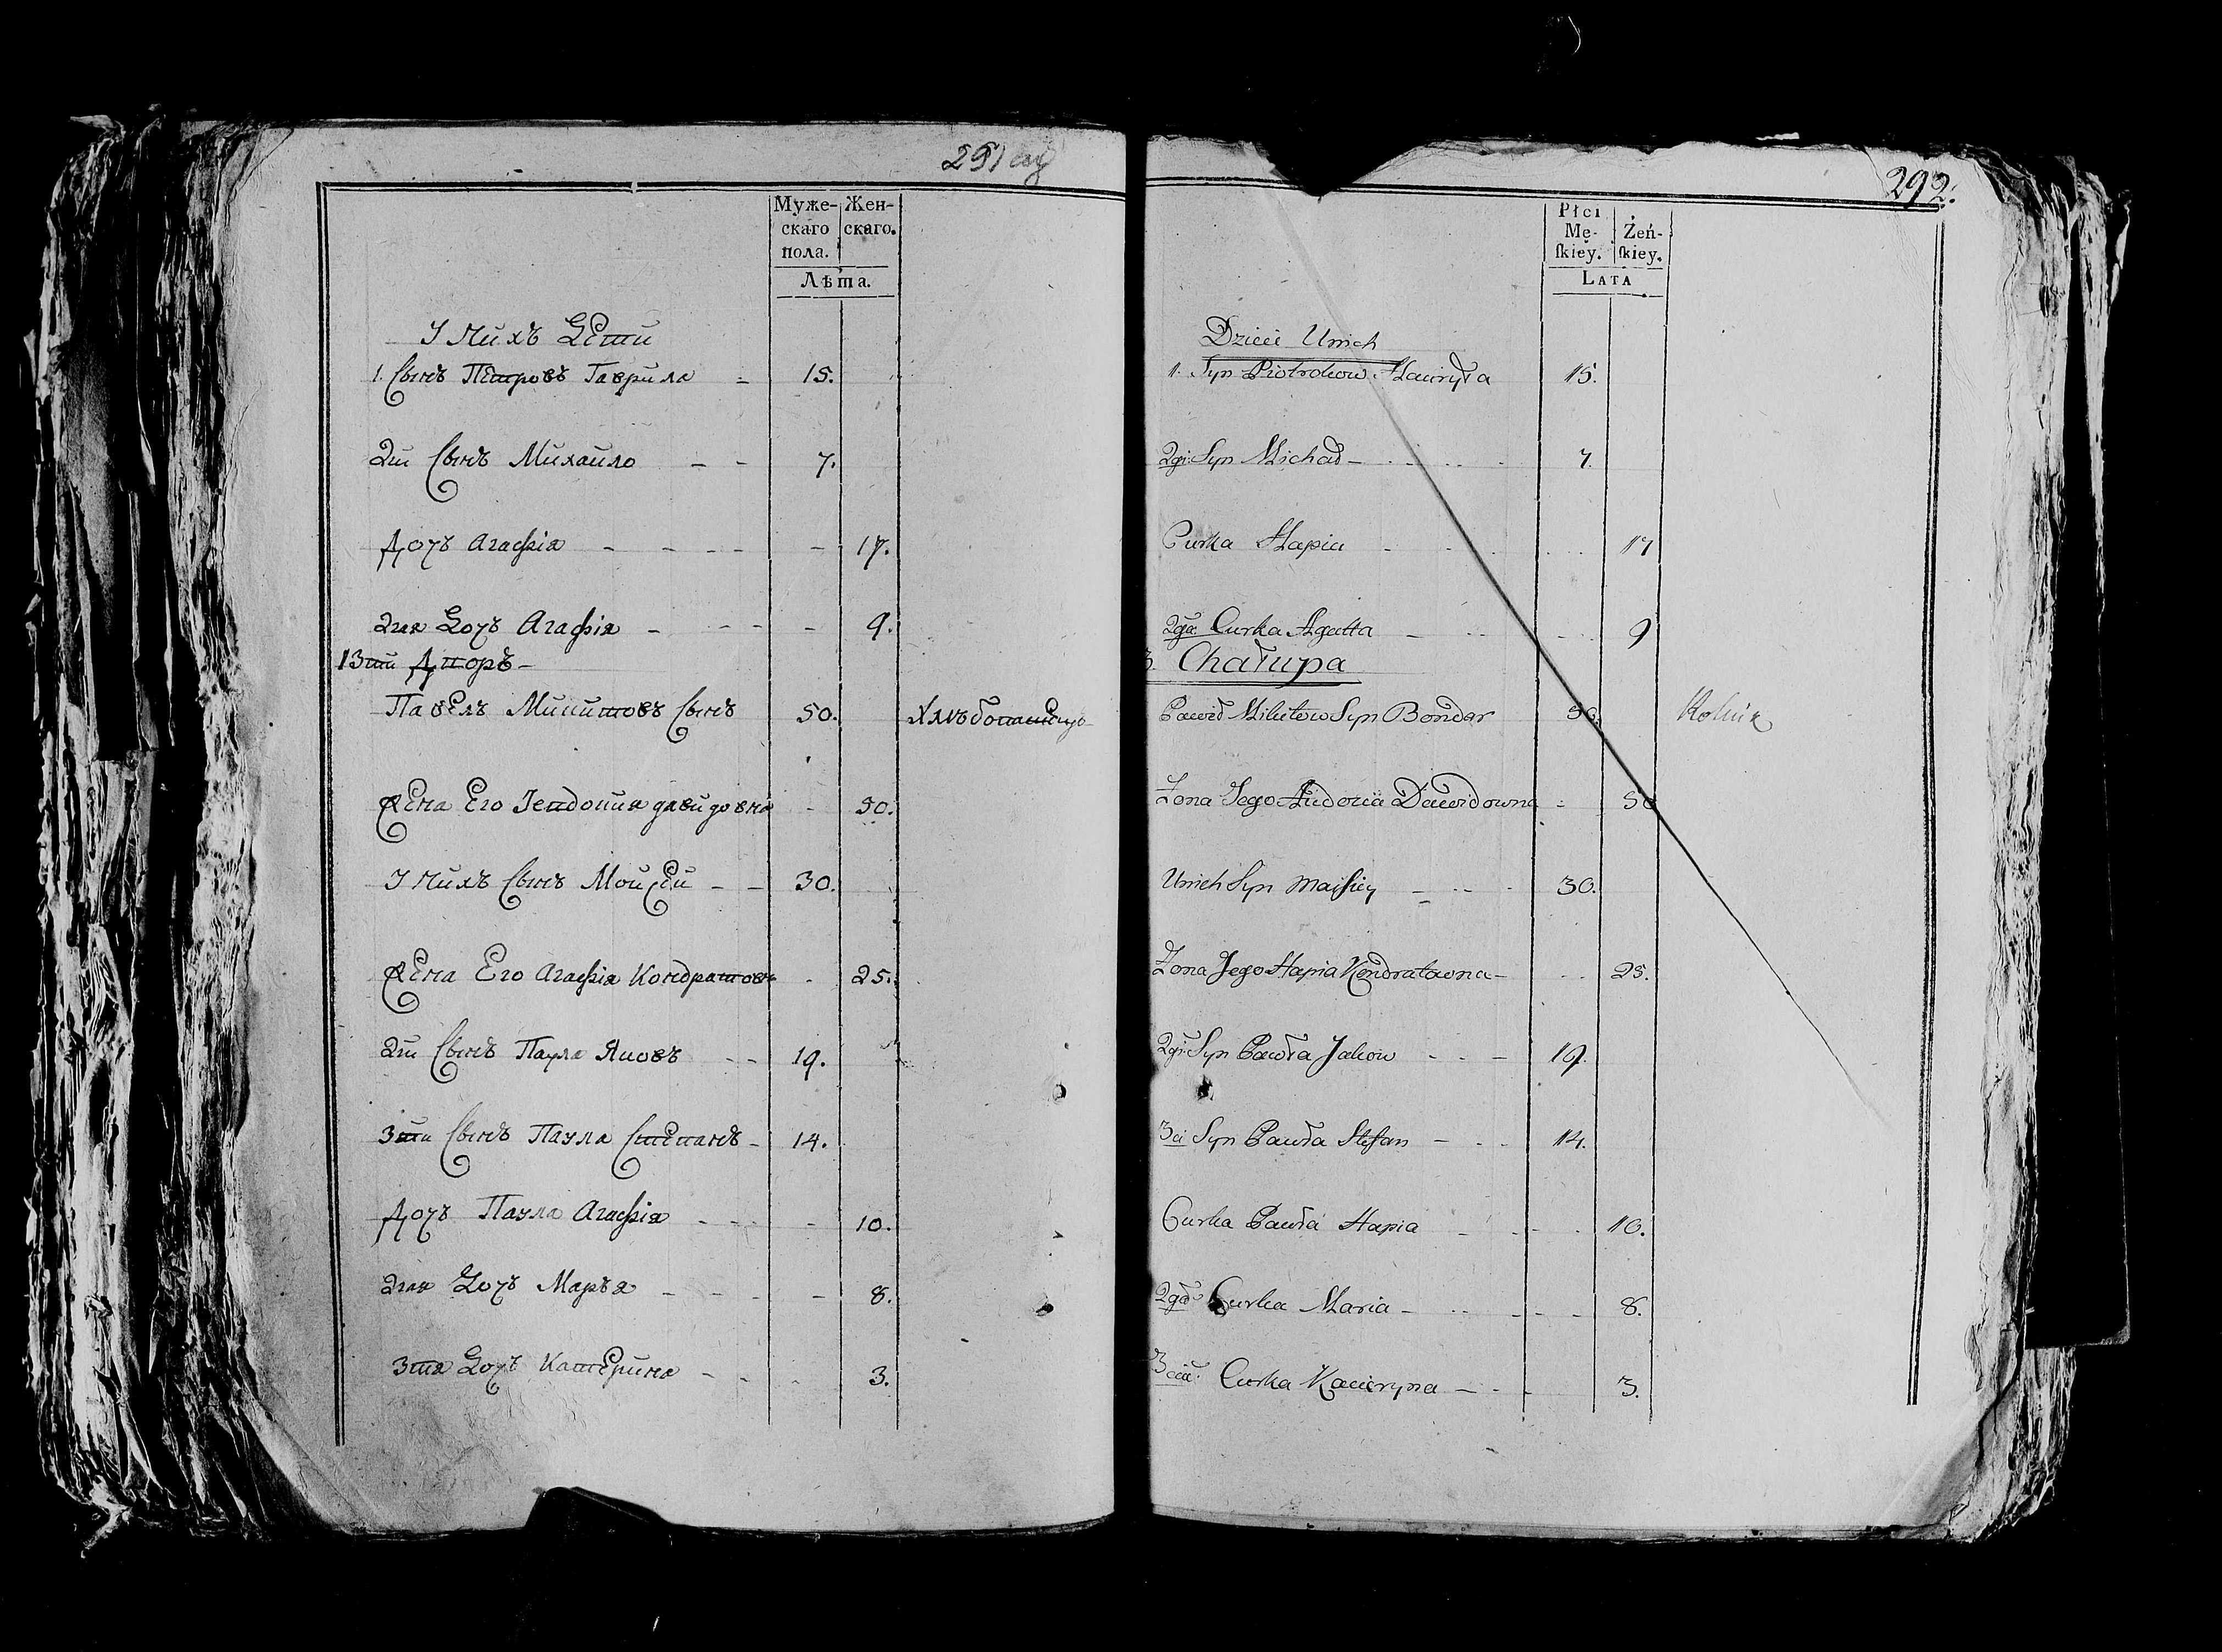 291 об
Муже-
скаго
пола.
Жен-
скаго.
Лѣта.
У нихъ Дети
1. Сынъ Петровъ Гаврила 15.
2й Сынъ Михайло 7.
Дочъ Агафія 17.
2гая Дочъ Агафія 9.
13тй Дворъ
Павелъ Микитовъ Сынъ 50. Хлѣбопашецъ
Жена Его Іевдокия давидовна 50.
У нихъ Сынъ Мойсей 30.
Жена Его Агафія Кондратовн 25.
2й Сынъ Паула Яковъ 19.
3тй Сынъ Паула Степанъ 14.
Дочъ Паула Агафія 10.
2гая Дочъ Маръя 8.
3тя Дочъ Катерина 3.
292.
Płci
Mę-
ſkiey.
Żeń-
ſkiey.
LATA
Dzieci Unich
1. Syn Piotrokow Hauryła 15.
2gi Syn Michał 7.
Curka Hapia 17
2ga Curka Agatta 9
3. Chałupa
Paweł Mikitow Syn Bondar 50. Rolnik
Zona Jego Audocia Dawidowna 50
Unich Syn Maisiey 30.
Zona Jego Hapia Kondratowna 25.
2gi Syn Pawła Jakow 19.
3ci Syn Pawła Stefan 14.
Curka Pawła Hapia 10.
2ga Curka Maria 8.
3cia Curka Kacieryna 3.